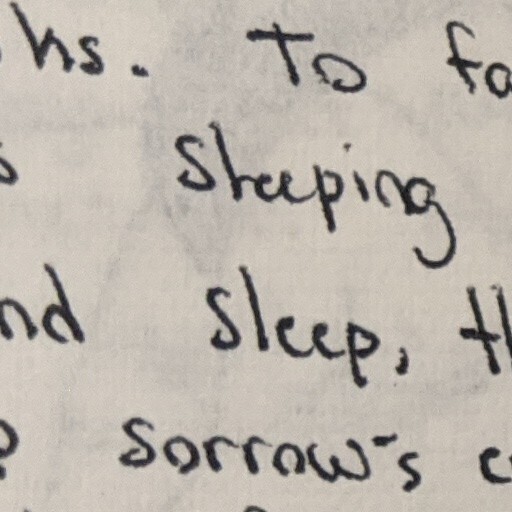 hs. To fa
sleeping
nd sleep, th
sorrow's c